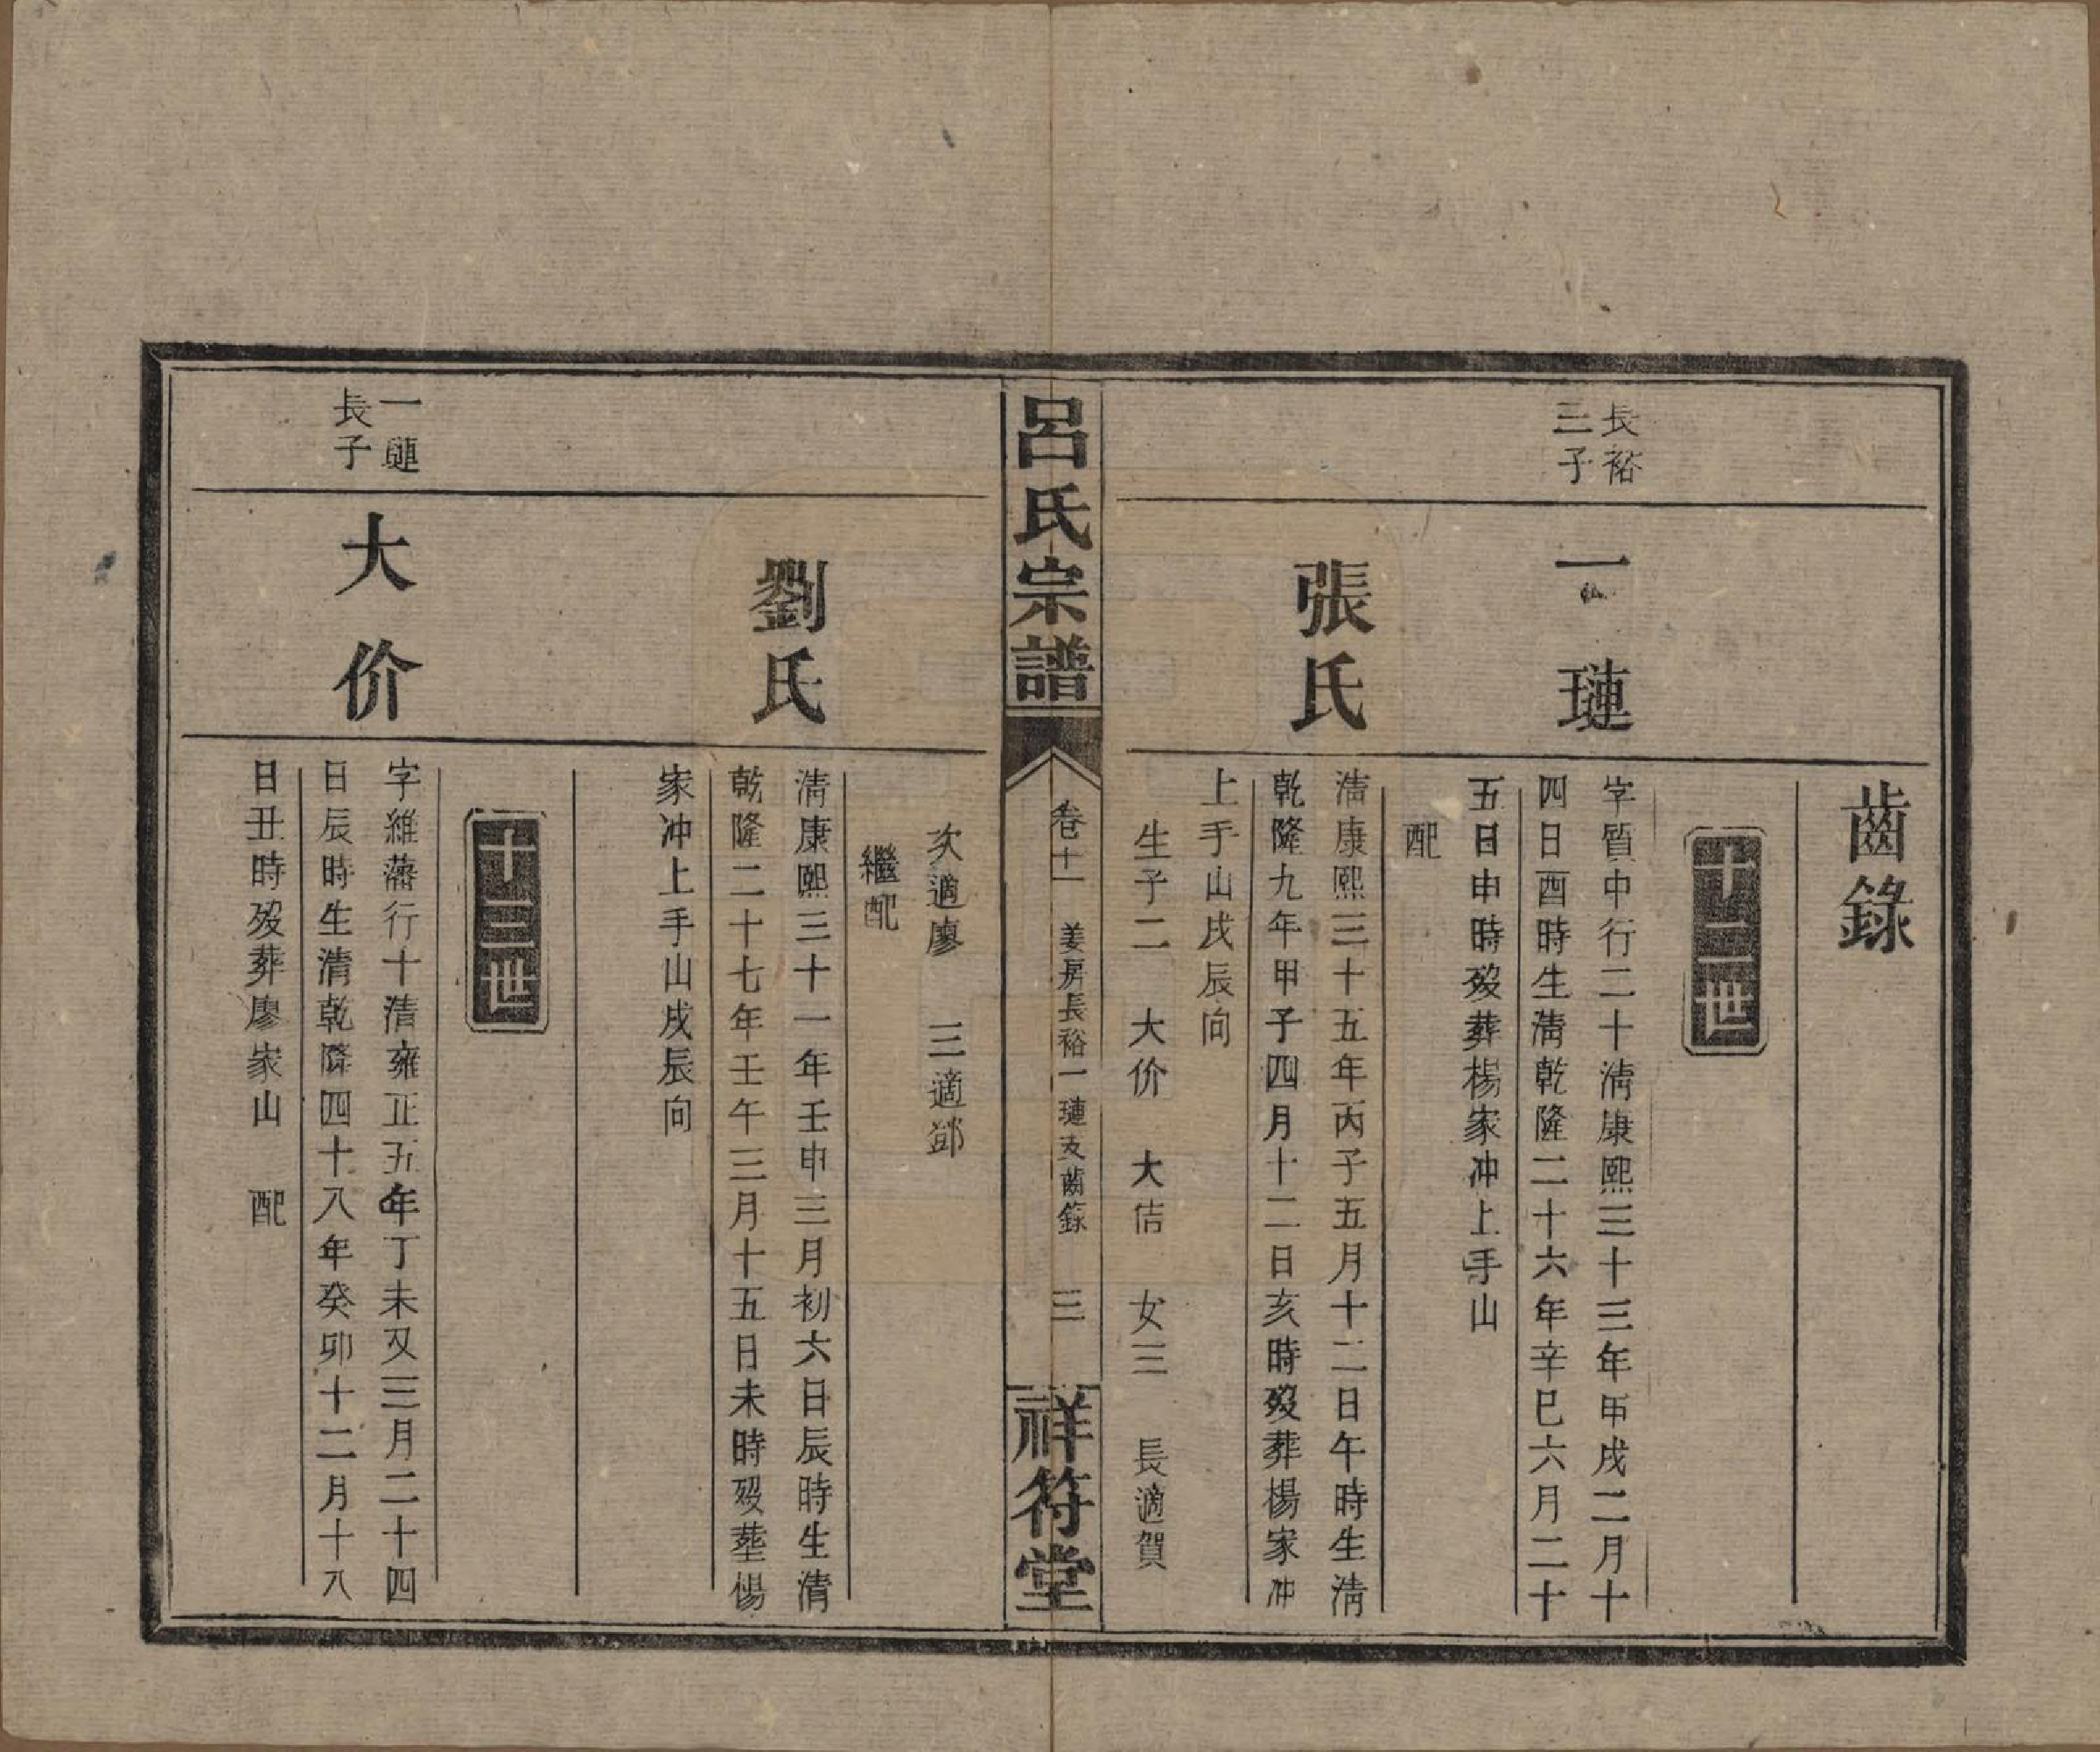 齒錄
十二世
長裕
三子
一璉
字質中行二十清康熙三十三年甲戌二月十
四日酉時生清乾隆二十六年辛巳六月二十
五日申時歿葬楊家冲上手山
配
張氏
清康熙三十五年丙子五月十二日午時生清
乾隆九年甲子四月十二日亥時歿葬楊家冲
上手山戌辰向
生子二 大价 大佶 女三 長適賀
呂氏宗譜
卷十一 姜房長裕一璉支齒錄 三
祥符堂
次適廖 三適鄧
繼配
劉氏
清康熙三十一年壬申三月初六日辰時生清
乾隆二十七年壬午三月十五日未時歿塟楊
家冲上手山戌辰向
十三世
一璉
長子
大价
字維藩行十清雍正五年丁未又三月二十四
日辰時生清乾隆四十八年癸卯十二月十八
日丑時歿葬廖家山 配